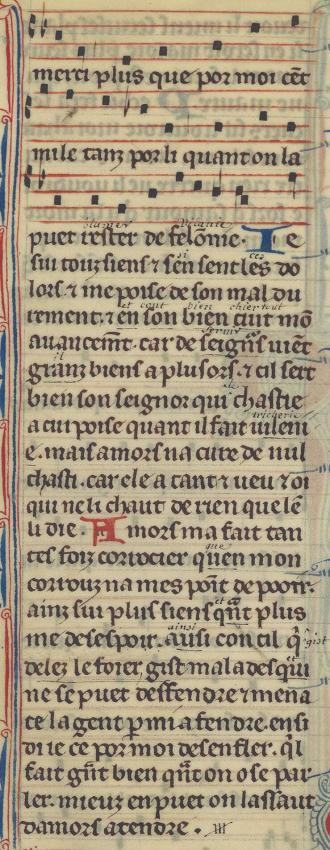 merci plus que por moi cēt
mile tanz por li quant on la
puet rester de felonie. Ie
sui touz siens ⁊ sen sent les do
lors. ⁊ me poise de son mal du
rement. ⁊ en son bien cuit mō
auancemt. car de seignr̄s uiēt
granz biens a plusors. ⁊ cil sert
bien son seignor qui chastie
a cui poise quant il fait uileni
e. mais amors na cure de nul
chasti. car ele a tant ⁊ ueu ⁊ oi
qui ne li chaut de rien que lē
li die. Amors ma fait tan
tes foiz corrocier quen mon
corrouz na mes poīt de pooir.
ainz sui plus siens qn̄t plus
me desespoir. ausi con cil q̄
delez le forer gist malades qui
ne se puet deffendre ⁊ mena
ce la gent p mi a fendre. ensi
di ie ce por moi desenfler. ql
fait gn̄t bien qn̄t on ose par
ler. mieuz en puet on lassaut
damors atendre. IIII